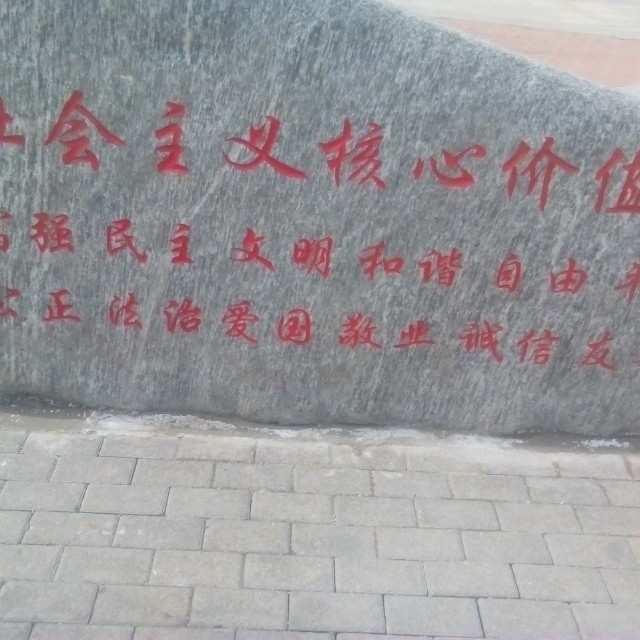 社会主义核心价值
富强 民主 文明 和谐 自由 平
公正 法治 爱国 敬业 诚信 友善